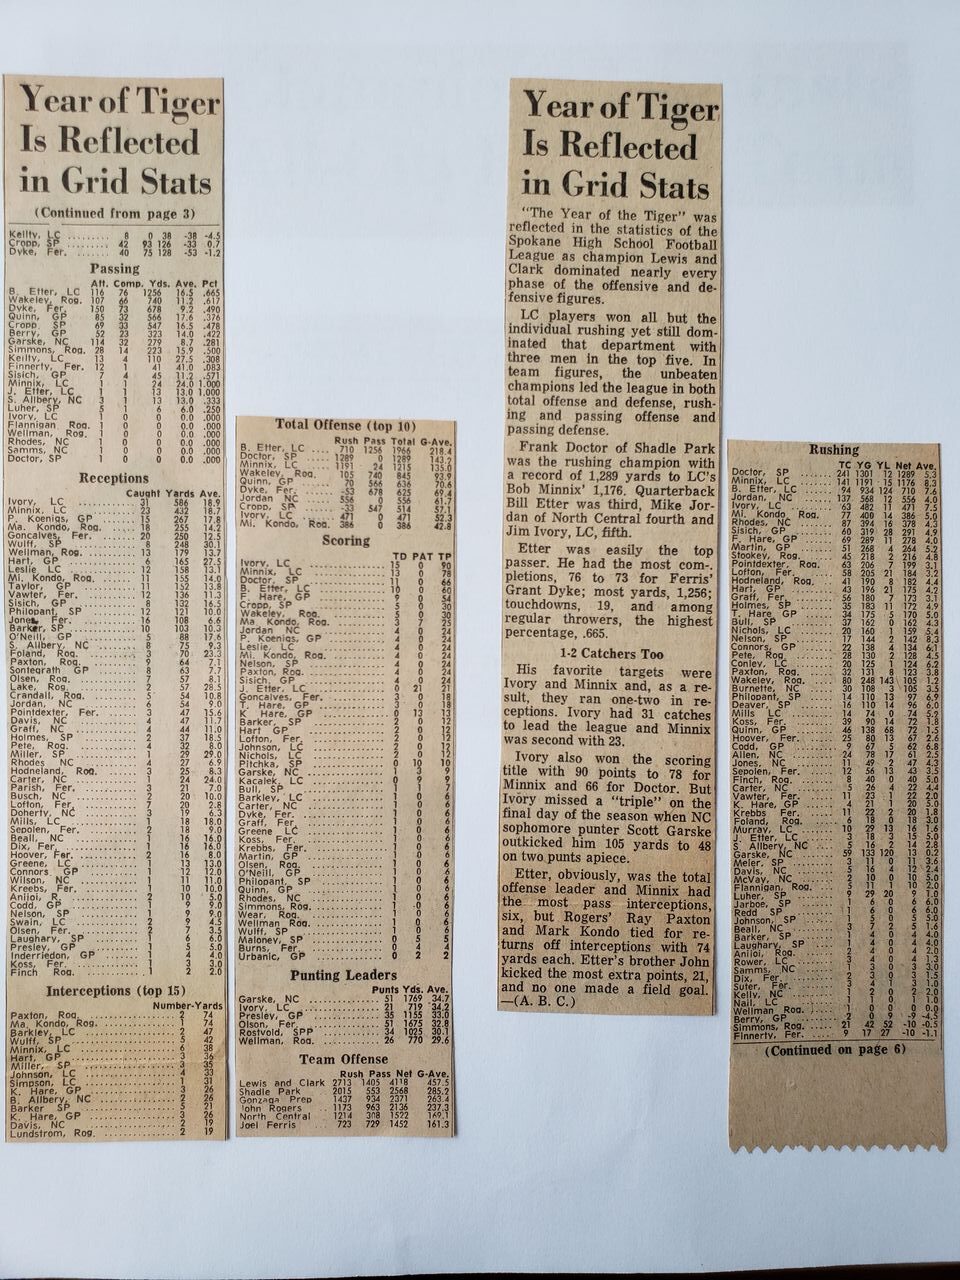 Year of Tiger
Is Reflected
in Grid Stats
(Continued from page 3)
Keilty, LC ......... 8 0 38 -38 -4.5
Cropp, SP ......... 42 93 126 -33 0.7
Dyke, Fer. ....... 40 75 128 -53 -1.2
Passing
Att. Comp. Yds. Ave. Pct
B. Etter, LC 116 76 1256 16.5 .665
Wakeley, Rog. 107 66 740 11.2 .617
Dyke, Fer. 150 73 678 9.2 .490
Quinn, GP 85 32 566 17.6 .376
Cropp, SP 69 33 547 16.5 .478
Berry, GP 52 23 323 14.0 .422
Garske, NC 114 32 279 8.7 .281
Simmons, Rog. 28 14 223 15.9 .500
Keilty, LC 13 4 110 27.5 .308
Finnerty, Fer. 12 1 41 41.0 .083
Sisich, GP 7 4 45 11.2 .571
Minnix, LC 1 1 24 24.0 1.000
J. Etter, LC 1 1 13 13.0 1.000
S. Allberry, NC 3 1 13 13.0 .333
Luher, SP 5 1 6 6.0 .250
Ivory, LC 1 0 0 0.0 .000
Flannigan, Rog. 1 0 0 0.0 .000
Wellman, Rog. 1 0 0 0.0 .000
Rhodes, NC 1 0 0 0.0 .000
Samms, NC 1 0 0 0.0 .000
Doctor, SP 1 0 0 0.0 .000
Receptions
Caught Yards Ave.
Ivory, LC 31 586 18.9
Minnix, LC 23 432 18.7
P. Koenigs, GP 15 267 17.8
Ma. Kondo, Rog. 18 255 14.2
Goncalves, Fer. 20 250 12.5
Wulff, SP 8 248 30.1
Wellman, Rog. 13 179 13.7
Hart, GP 6 165 27.5
Leslie, LC 12 158 13.1
Mi. Kondo, Rog. 11 155 14.0
Taylor, GP 11 152 13.8
Vawter, Fer. 12 136 11.3
Sisich, GP 8 132 16.5
Philopant, SP 12 121 10.0
Jones, Fer. 16 108 6.6
Barker, SP 10 103 10.3
O'Neill, GP 5 88 17.6
S. Allberry, NC 8 75 9.3
Foland, Rog. 3 70 23.3
Paxton, Rog. 9 64 7.1
Sontegrath GP 8 63 7.7
Olsen, Rog. 7 57 8.1
Lake, Rog. 2 57 28.5
Crandall, Rog. 5 54 10.8
Jordan, NC 6 54 9.0
Pointdexter, Fer. 3 47 15.6
Davis, NC 4 47 11.7
Graff, NC 4 44 11.0
Holmes, SP 2 37 18.5
Pete, Rog. 4 32 8.0
Miller, SP 1 29 29.0
Rhodes NC 4 27 6.9
Hodneland, Rog. 3 25 8.3
Carter, NC 1 24 24.0
Parish, Fer. 3 21 7.0
Busch, NC 2 20 10.0
Lofton, Fer. 7 20 2.8
Doherty, NC 3 19 6.3
Mills, LC 1 18 18.0
Sepolen, Fer. 2 18 9.0
Beall, NC 1 16 16.0
Dix, Fer. 1 16 16.0
Hoover, Fer. 2 16 8.0
Greene, LC 1 13 13.0
Connors GP 1 12 12.0
Wilson, NC 1 11 11.0
Kreebs, Fer. 1 10 10.0
Anijol, R. 2 10 5.0
Codd, GP 1 9 9.0
Nelson, SP 1 9 9.0
Swain, LC 2 9 4.5
Olsen, Fer. 2 7 3.5
Laughary, SP 1 6 6.0
Presley, GP 1 5 5.0
Inderriedon, GP 1 4 4.0
Koss, Fer. 1 3 3.0
Finch Rog. 1 2 2.0
Interceptions (top 15)
Number-Yards
Paxton, Rog. 2 74
Ma. Kondo, Rog. 1 74
Barkley, LC 2 47
Wulff, SP 5 42
Minnix, LC 6 38
Hart, GP 3 36
Miller, SP 3 35
Johnson, LC 4 33
Simpson, LC 1 31
K. Hare, GP 3 26
B. Allberry, NC 2 26
Barker SP 5 21
K. Hare, GP 3 26
Davis, NC 2 19
Lundstrom, Rog. 2 19
Total Offense (top 10)
Rush Pass Total G-Ave.
B. Etter, LC .... 710 1256 1966 218.4
Doctor, SP .... 1289 0 1289 143.2
Minnix, LC .... 1191 24 1215 135.0
Wakeley, Rog. 105 740 845 93.9
Quinn, GP 70 566 636 70.6
Dyke, Fer. -53 678 625 69.4
Jordan NC 556 0 556 61.7
Cropp, SP -33 547 514 57.1
Ivory, LC 471 0 471 52.3
Mi. Kondo, Rog. 386 0 386 42.8
Scoring
TD PAT TP
Ivory, LC 15 0 90
Minnix, LC 13 0 78
Doctor, SP 11 0 66
B. Etter, LC 10 0 60
F. Hare, GP 9 0 54
Cropp, SP 5 0 30
Wakeley, Rog. 5 0 30
Ma Kondo, Rog. 3 7 25
Jordan NC 4 0 24
P. Koenigs, GP 4 0 24
Leslie, LC 4 0 24
Mi. Kondo, Rog. 4 0 24
Nelson, SP 4 0 24
Paxton, Rog. 4 0 24
Sisich, GP 4 0 24
J. Etter, LC 0 21 21
Goncalves, Fer. 3 0 18
T. Hare, GP 3 0 18
K Hare, GP 0 13 13
Barker, SP 2 0 12
Hart GP 2 0 12
Lofton, Fer. 2 0 12
Johnson, LC 2 0 12
Nichols, LC 2 0 12
Pitchka, SP 0 10 10
Garske, NC 1 3 9
Kacalek, LC 0 9 9
Bull, SP 1 1 7
Barkley, LC 1 0 6
Carter, NC 1 0 6
Dyke, Fer. 1 0 6
Graff, Fer. 1 0 6
Greene LC 1 0 6
Koss, Fer. 1 0 6
Krebbs, Fer. 1 0 6
Martin, GP 1 0 6
Olsen, Rog. 1 0 6
O'Neill, GP 1 0 6
Philopant, SP 1 0 6
Quinn, GP 1 0 6
Rhodes, NC 1 0 6
Simmons, Rog. 1 0 6
Wear, Rog. 1 0 6
Wellman Rog. 1 0 6
Wulff, SP 1 0 6
Maloney, SP 0 5 5
Burns, Fer. 0 4 4
Urbanic, GP 0 2 2
Punting Leaders
Punts Yds. Ave.
Garske, NC 51 1769 34.7
Ivory, LC 21 719 34.2
Presley, GP 35 1155 33.0
Olson, Fer. 51 1675 32.8
Rostvold, SPP 34 1025 30.1
Wellman, Rog. 26 770 29.6
Team Offense
Rush Pass Net G-Ave.
Lewis and Clark 2713 1405 4118 457.5
Shadle Park 2015 553 2568 285.2
Gonzaga Prep 1437 934 2371 263.4
John Rogers 1173 963 2136 237.3
North Central 1214 308 1522 169.1
Joel Ferris 723 729 1452 161.3
Year of Tiger
Is Reflected
in Grid Stats
"The Year of the Tiger" was
reflected in the statistics of the
Spokane High School Football
League as champion Lewis and
Clark dominated nearly every
phase of the offensive and de-
fensive figures.
LC players won all but the
individual rushing yet still dom-
inated that department with
three men in the top five. In
team figures, the unbeaten
champions led the league in both
total offense and defense, rush-
ing and passing offense and
passing defense.
Frank Doctor of Shadle Park
was the rushing champion with
a record of 1,289 yards to LC's
Bob Minnix' 1,176. Quarterback
Bill Etter was third, Mike Jor-
dan of North Central fourth and
Jim Ivory, LC, fifth.
Etter was easily the top
passer. He had the most com-
pletions, 76 to 73 for Ferris'
Grant Dyke; most yards, 1,256;
touchdowns, 19, and among
regular throwers, the highest
percentage, .665.
1-2 Catchers Too
His favorite targets were
Ivory and Minnix and, as a re-
sult, they ran one-two in re-
ceptions. Ivory had 31 catches
to lead the league and Minnix
was second with 23.
Ivory also won the scoring
title with 90 points to 78 for
Minnix and 66 for Doctor. But
Ivory missed a "triple" on the
final day of the season when NC
sophomore punter Scott Garske
outkicked him 105 yards to 48
on two punts apiece.
Etter, obviously, was the total
offense leader and Minnix had
the most pass interceptions,
six, but Rogers' Ray Paxton
and Mark Kondo tied for re-
turns off interceptions with 74
yards each. Etter's brother John
kicked the most extra points, 21,
and no one made a field goal.
—(A. B. C.)
Rushing
TC YG YL Net Ave.
Doctor, SP 241 1301 12 1289 5.3
Minnix, LC 141 1191 15 1176 8.3
B. Etter, LC 94 934 124 710 7.6
Jordan, NC 137 568 12 556 4.0
Ivory, LC 63 482 11 471 7.5
Mi. Kondo Rog. 77 400 14 386 5.0
Rhodes, NC 87 394 16 378 4.3
Sisich, GP 60 319 28 291 4.9
F. Hare, GP 69 289 11 278 4.0
Martin, GP 51 268 4 264 5.2
Stookey, Rog. 45 218 2 216 4.8
Pointdexter, Fer. 63 206 7 199 3.1
Lofton, Fer. 58 205 21 184 3.2
Hodneland, Rog. 41 190 8 182 4.4
Hart, GP 43 196 21 175 4.2
Graff, Fer. 56 180 7 173 3.1
Holmes, SP 35 183 11 172 4.9
T. Hare, GP 34 175 5 170 5.0
Bull, SP 37 162 0 162 4.3
Nichols, LC 20 160 1 159 5.4
Nelson, SP 17 144 2 142 8.3
Connors, GP 22 138 4 134 6.1
Pete, Rog. 28 130 2 128 4.5
Conley, LC 20 125 1 124 6.2
Paxton, Rog. 32 131 8 123 3.8
Wakeley, Rog. 80 248 143 105 1.2
Burnette, NC 30 108 3 105 3.5
Philopant, SP 14 110 13 97 6.9
Deaver, SP 16 110 14 96 6.0
Mills LC 14 74 0 74 5.2
Koss, Fer. 39 90 14 72 1.8
Quinn, GP 46 138 68 72 1.5
Hoover, Fer. 25 80 13 67 2.6
Codd, GP 9 67 5 62 6.8
Allen, NC 24 78 17 61 2.5
Jones, NC 11 49 2 47 4.3
Sepolen, Fer. 12 56 13 43 3.5
Finch, Rog. 8 40 0 40 5.0
Carter, NC 5 26 4 22 4.4
Vawter, Fer. 11 23 1 22 2.0
K. Hare, GP 4 21 1 20 5.0
Krebbs Fer. 11 22 2 20 1.8
Foland, Rog. 6 18 0 18 3.0
Murray, LC 10 29 13 16 1.6
J. Etter, LC 3 18 3 15 5.0
S Allberry, NC 5 16 2 14 2.8
Garske, NC 59 133 120 13 0.2
Meier, SP 3 11 0 11 3.6
Davis, NC 5 16 4 12 2.4
McVay, NC 2 10 0 10 5.0
Flannigan, Rog. 5 11 1 10 2.0
Luher, SP 9 29 20 9 1.0
Jarboe, SP 1 6 0 6 6.0
Redd SP 1 6 0 6 6.0
Johnson, SP 1 5 0 5 5.0
Beall, NC 3 7 2 5 1.6
Barker, SP 1 4 0 4 4.0
Laughary, SP 1 4 0 4 4.0
Anijol, Rog. 2 4 0 4 2.0
Rower, LC 3 4 0 4 1.3
Samms, NC 1 3 0 3 3.0
Dix, Fer. 2 3 0 3 1.5
Suter, Fer. 3 4 1 3 1.0
Kelly, NC 1 2 0 2 2.0
Nail, LC 1 1 0 1 1.0
Wellman Rog. 1 0 0 0 0.0
Berry, GP 2 0 9 -9 -4.5
Simmons, Rog. 21 42 52 -10 -0.5
Finnerty, Fer. 9 17 27 -10 -1.1
(Continued on page 6)